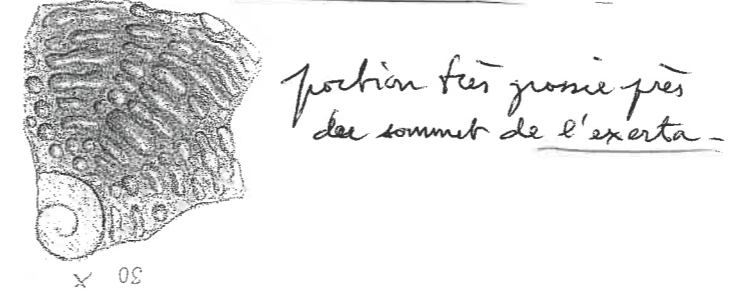 portion très grossie près
du sommet de l'exerta -
X 30